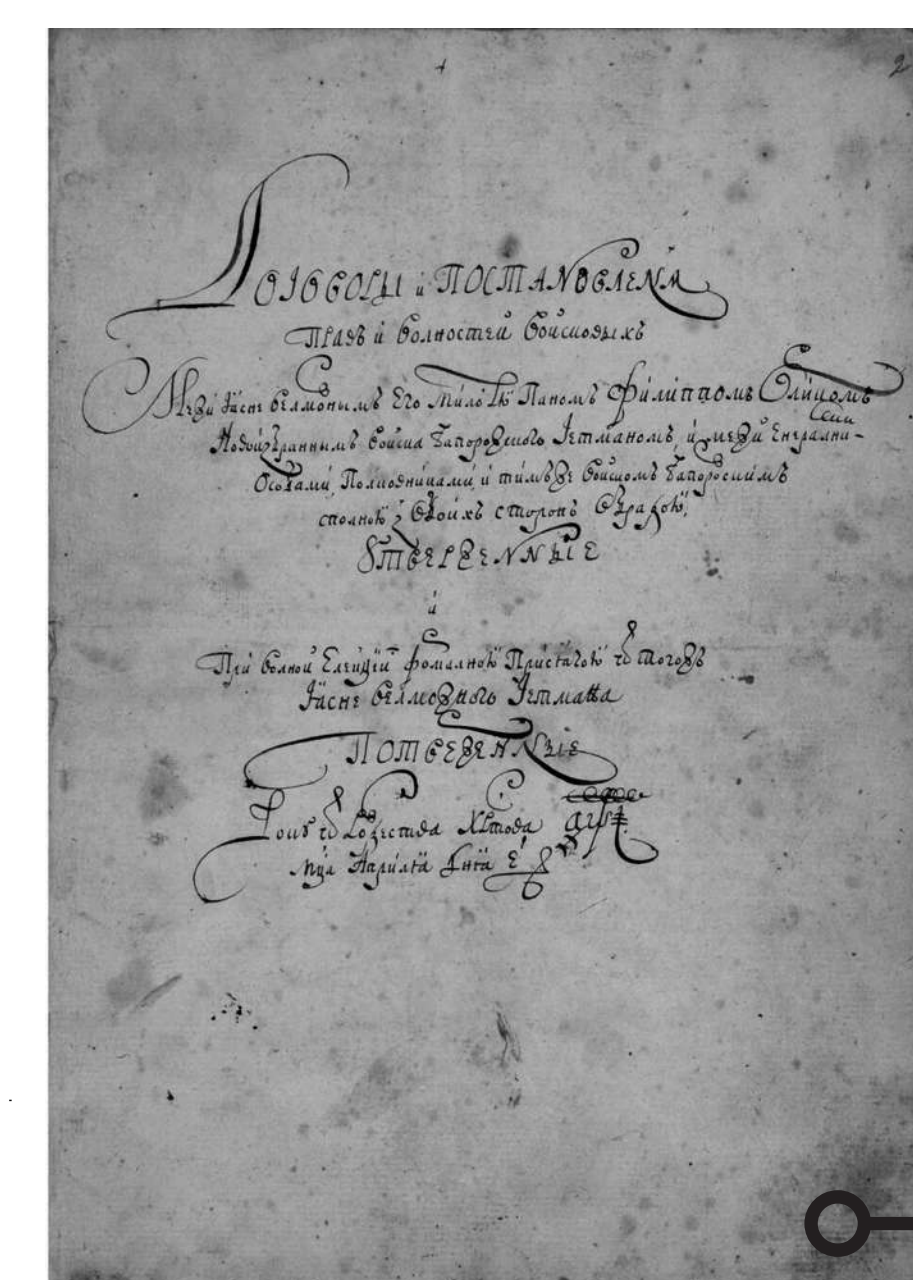 2
Договоры и Постановленѧ
Правъ и волностей войсковыхъ
Межи Ясне велможнымъ Его Милостю Паномъ Филиппомъ Орликомъ
Новоизбраннымъ войска Запорожского Гетманомъ, и межи Енералними
Особами, Полковниками, и тимъже войскомъ Запорозскимъ
сполною з обоихъ сторонъ обрадою,
Утверженныіе
и
При волной Елекціи формалною Присягою ѿ тогожъ
Ясне велможного Гетмана
Потверженныіе
Року ѿ Рожества Христова ҂аѱі
мца Априля дня є